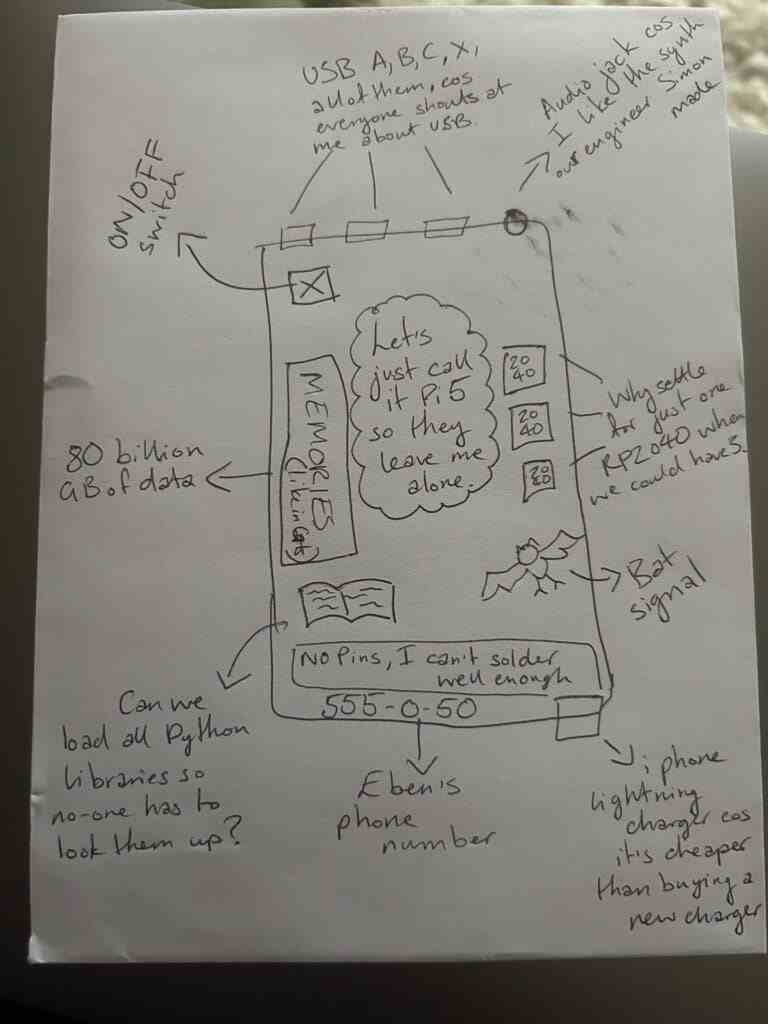 USB A, B, C, X,
all of them, cos
everyone shouts at
me about USB.
Audio jack cos
I like the synth
our engineer Simon
made
ON/OFF
switch
X
Let's
just call
it Pi 5
so they
leave me
alone.
20
40
20
40
20
40
Why settle
for just one
RP2040 when
we could have 3.
MEMORIES
(like in Cats)
80 billion
GB of data
Bat
signal
No Pins, I can't solder
well enough
555-0-50
Can we
load all Python
libraries so
no-one has to
look them up?
Eben's
phone
number
iphone
lightning
charger cos
it's cheaper
than buying a
new charger